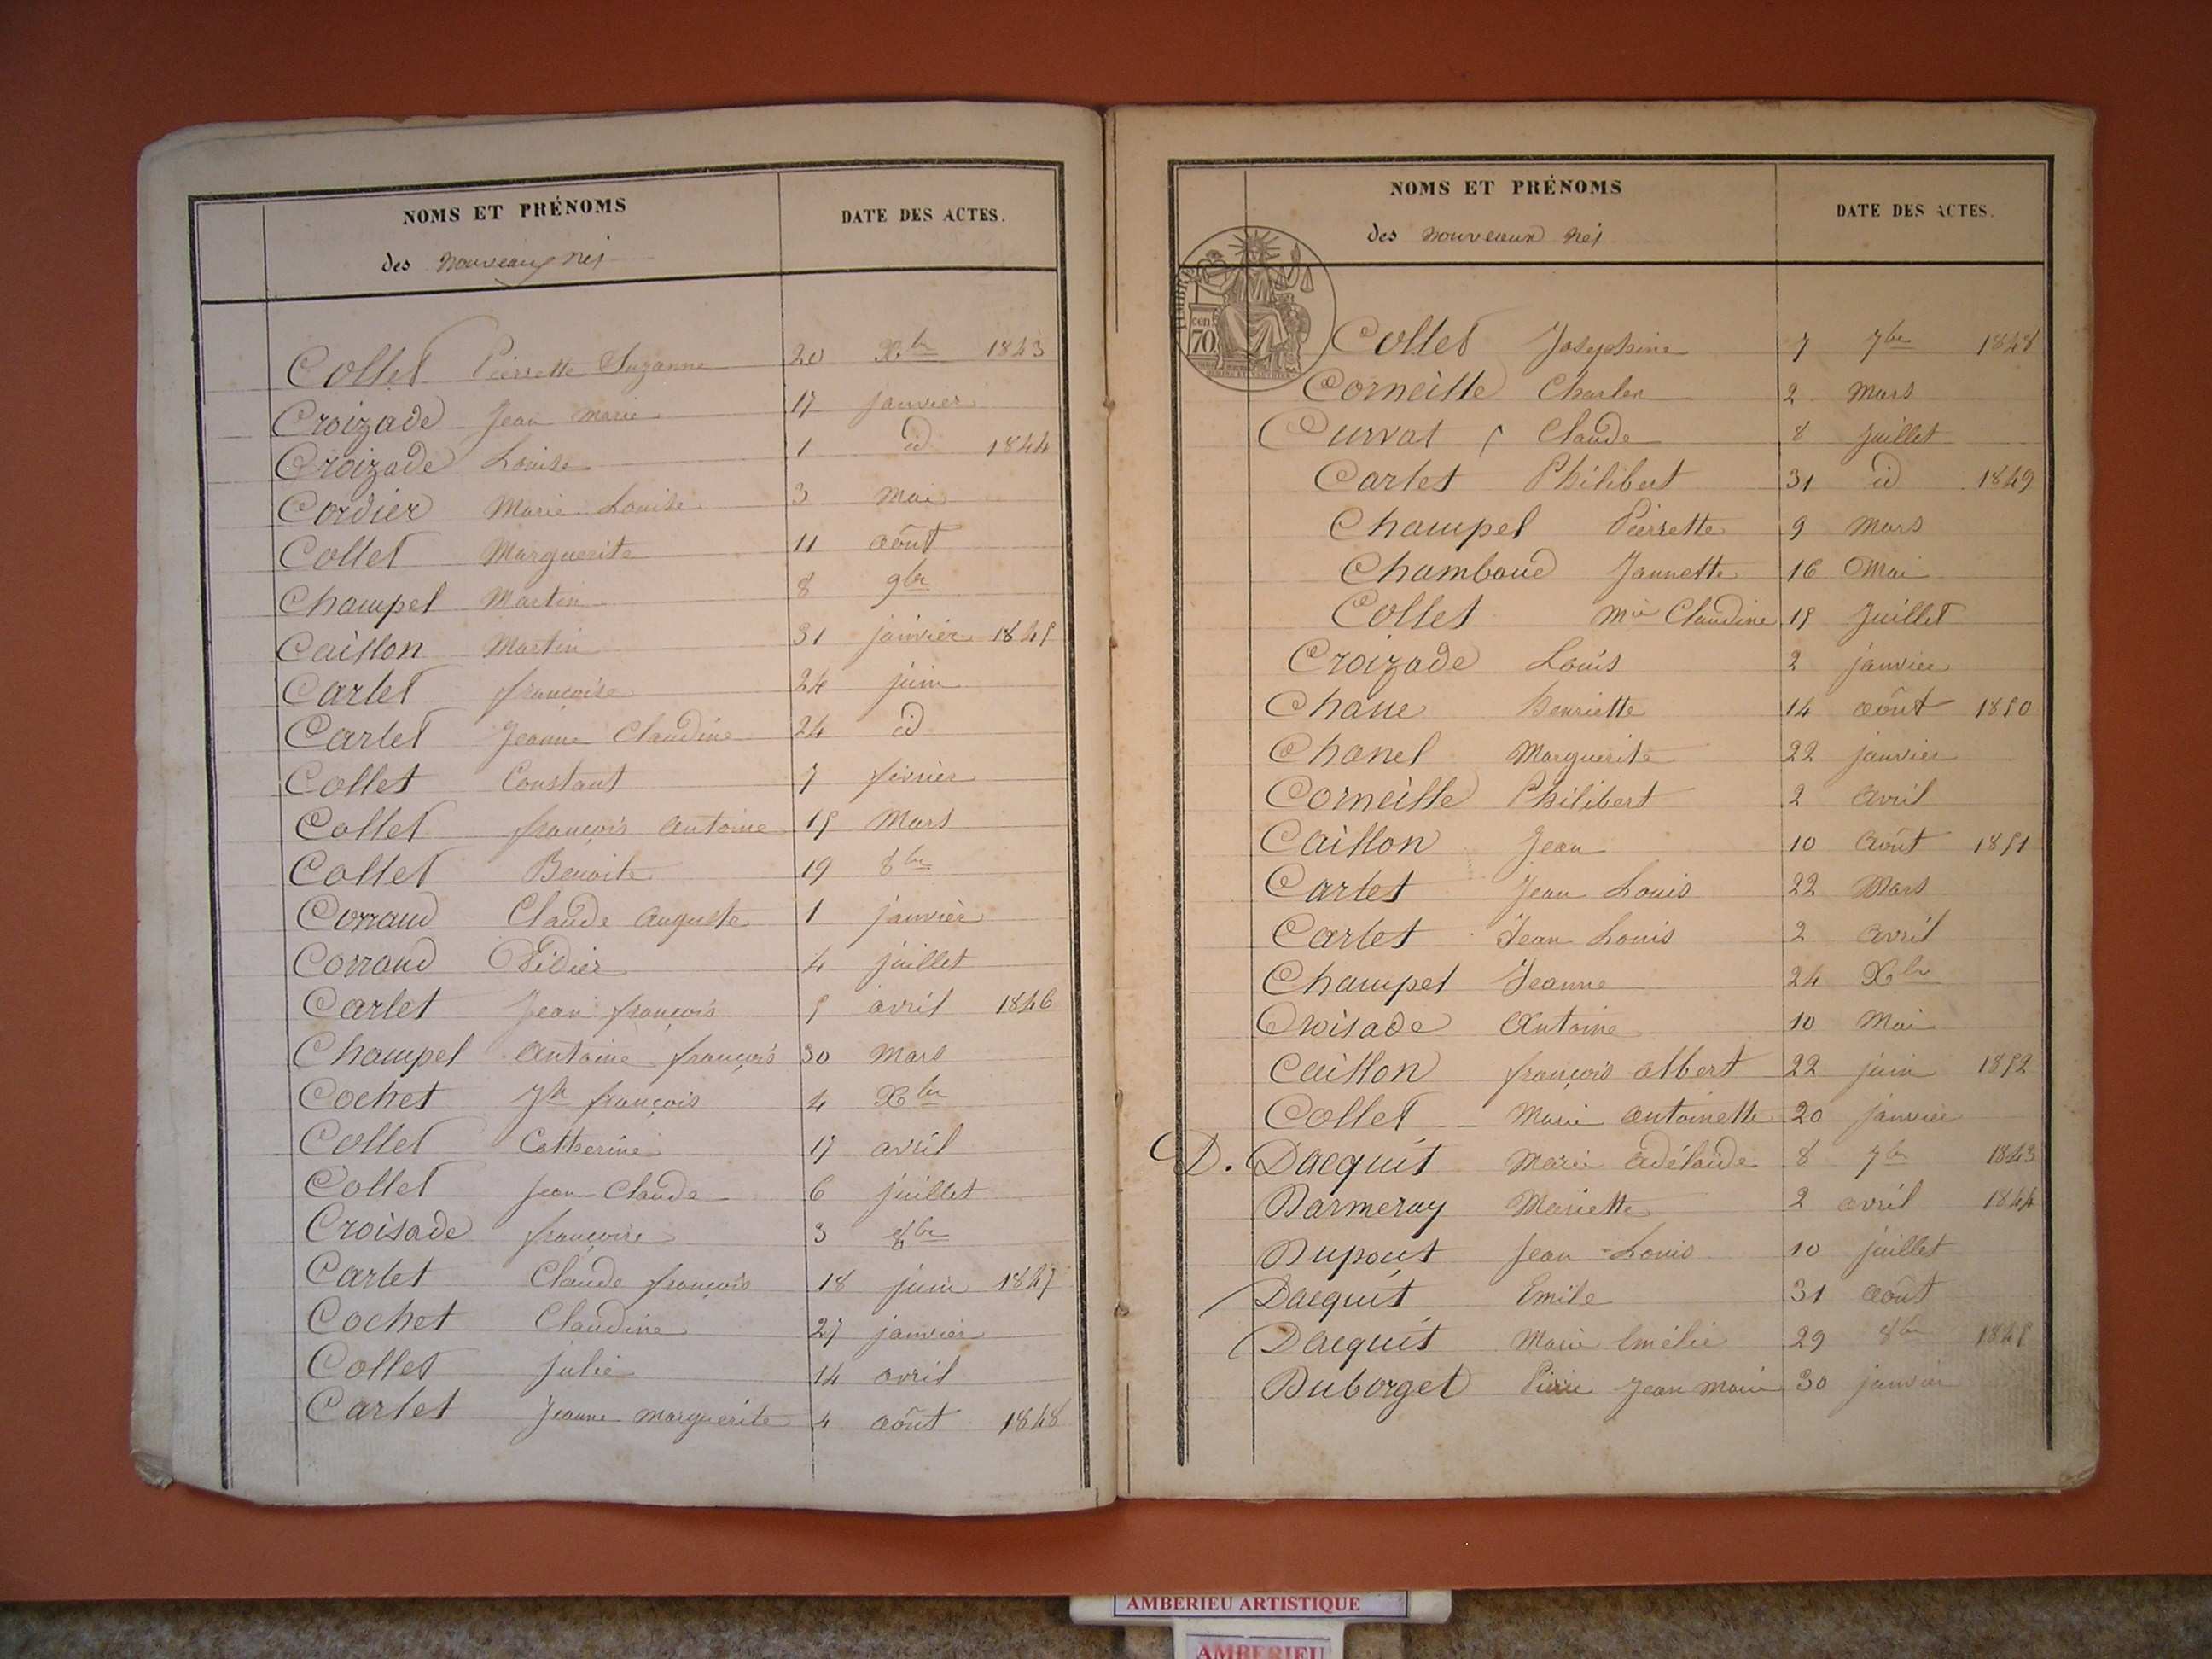 NOMS ET PRÉNOMS
DATE DES ACTES.
des nouveaux nés
Collet Pierrette Suzanne 20 Xbre 1843
Croizade Jean Marie 17 janvier
Croizade Louise 1 id 1844
Cordier Marie Louise 3 mai
Collet Marguerite 11 août
Champel Martin 8 9bre
Caillon Martin 31 janvier 1845
Carlet françoise 24 juin
Carlet Jeanne Claudine 24 id
Collet Constant 7 février
Collet françois antoine 15 Mars
Collet Benoite 19 8bre
Corraud Claude Auguste 1 janvier
Corraud Didier 4 juillet
Carlet Jean françois 5 avril 1846
Champel antoine françois 30 Mars
Cochet Jh françois 4 Xbre
Collet Catherine 17 avril
Collet Jean Claude 6 juillet
Croisade françoise 3 8bre
Carlet Claude françois 18 juin 1847
Cochet Claudine 27 janvier
Collet Julie 14 avril
Carlet Jeanne Marguerite 4 août 1848
NOMS ET PRÉNOMS
DATE DES ACTES.
des nouveaux nés
TIMBRE
cent 70
Collet Josephine 7 7bre 1848
Corneille Charles 2 Mars
Curvat Claude 8 Juillet
Carlet Philibert 31 id 1849
Champel Pierrette 9 Mars
Chamboud Jannette 16 Mai
Collet Mie Claudine 15 Juillet
Croizade Louis 2 janvier
Chane henriette 14 août 1850
Chanel Marguerite 22 janvier
Corneille Philibert 2 avril
Caillon Jean 10 Août 1851
Carlet Jean Louis 22 Mars
Carlet Jean Louis 2 avril
Champel Jeanne 24 Xbre
Croisade Antoine 10 Mai
Caillon françois albert 22 juin 1852
Collet Marie antoinette 20 janvier
D. Dacquit Marie Adélaïde 8 7bre 1843
Darmeray Mariette 2 avril 1844
Dupont Jean-Louis 10 juillet
Dacquit Emile 31 août
Dacquit Marie Emélie 29 8bre 1845
Duborget Pierre Jean Marie 30 janvier
AMBERIEU ARTISTIQUE
AMBERIEU